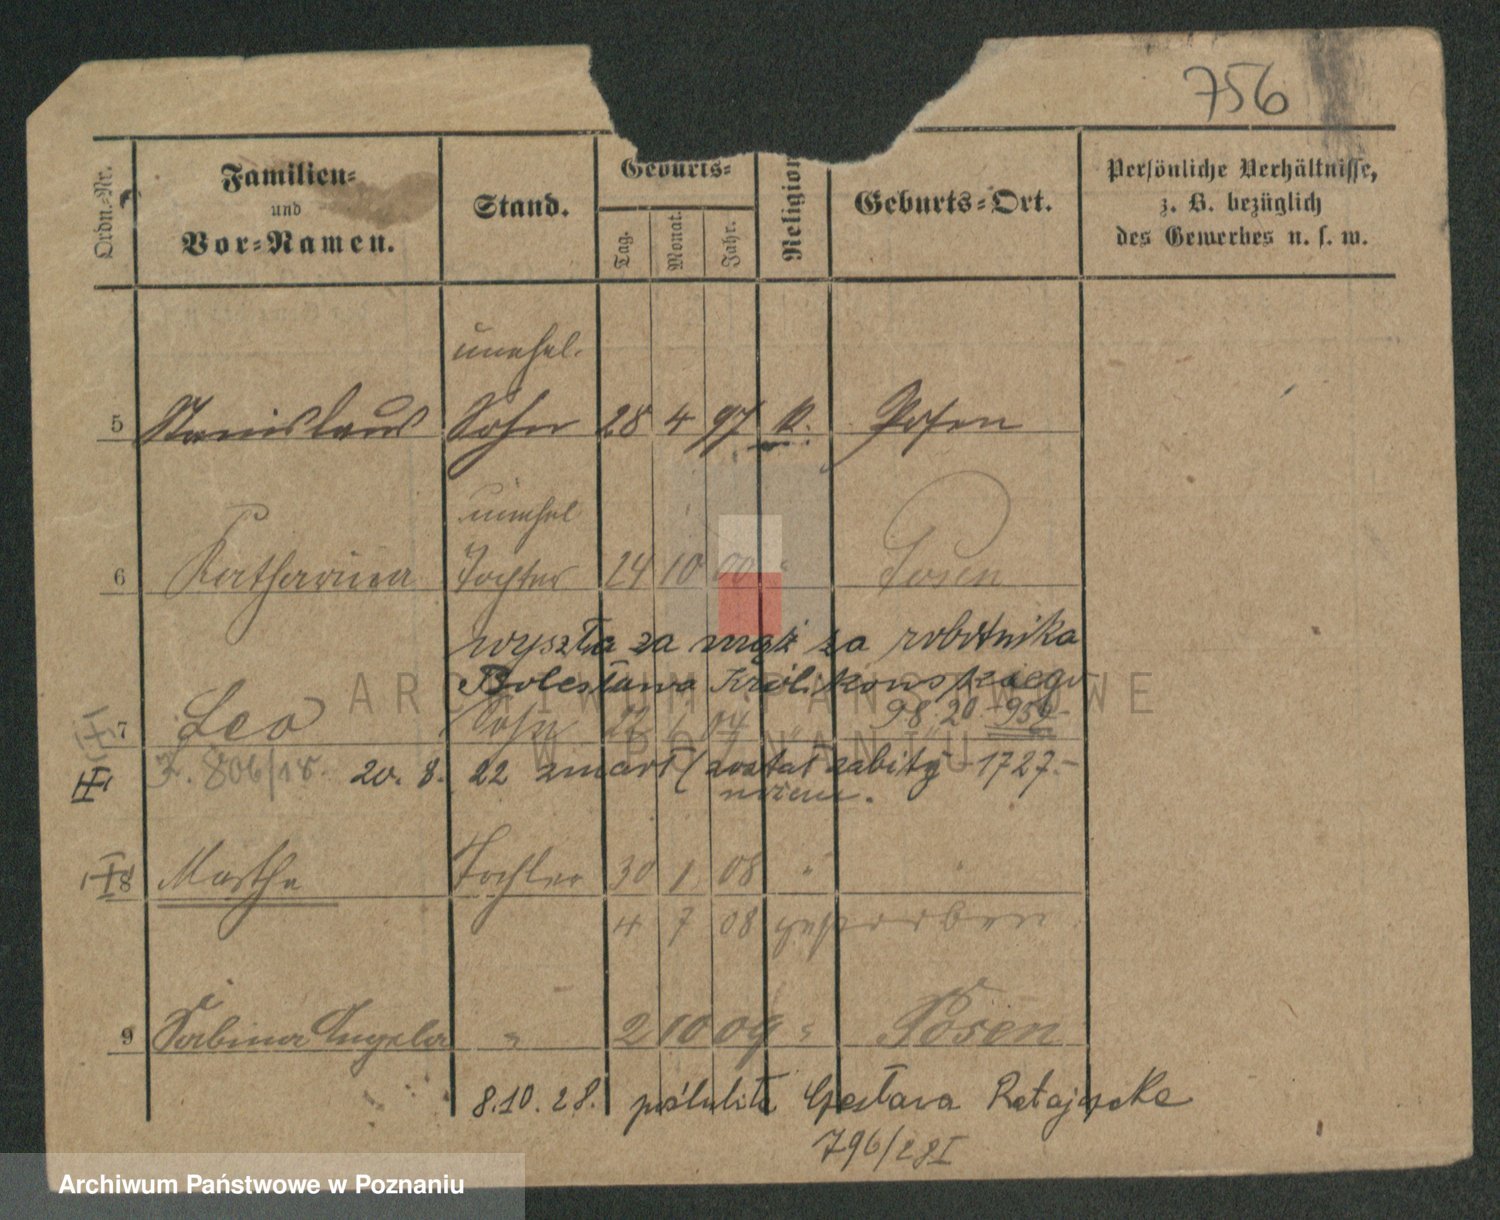 756
Ordn.-Nr.
Familien-
und
Vor-Namen.
Stand.
Geburts-
Tag.
Monat.
Jahr.
Religion
Geburts-Ort.
Persönliche Verhältnisse,
z. B. bezüglich
des Gewerbes u. s. w.
unehel.
5 Stanislaus Sohn 28 4 97 k. Posen
unehel
6 Katharina Tochter 24 10 00 " Posen
wyszła za mąż za robotnika
Bolesława Królikowskiego
7 Leo Sohn 22 04 " " 98 20 - 956 -
F. 806/18. 20. 8. 22 zmarł (został zabity - 1727.-
nożem.
8 Martha Tochter 30 1 08 " "
4 7 08 gestorben
9 Sabina Angela " 2 10 09 " Posen
8.10.28. poślubiła Gustawa Ratajczaka
796/28 I
ARCHIWUM PAŃSTWOWE
W POZNANIU
Archiwum Państwowe w Poznaniu